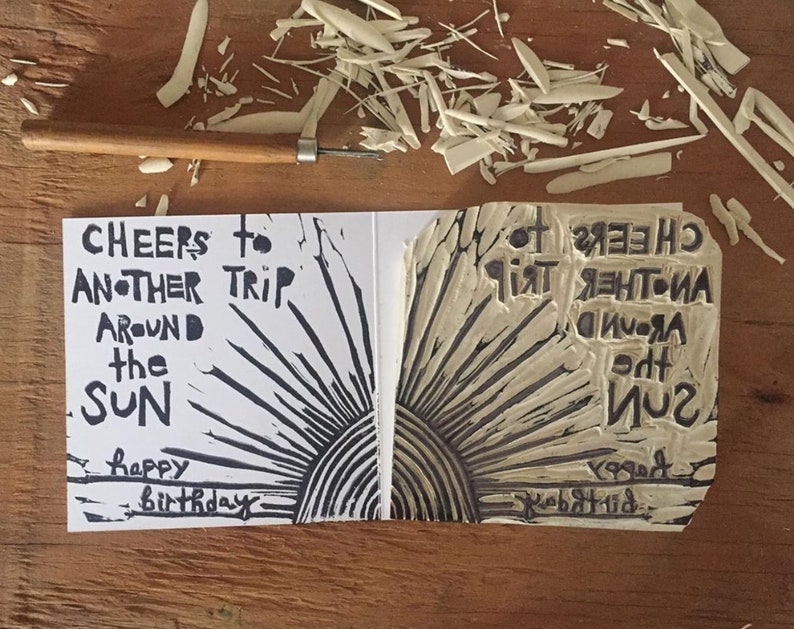 CHEERS to
ANOTHER TRIP
AROUND
the
SUN
happy
birthday
CHEERS to
ANOTHER TRIP
AROUND
the
SUN
happy
birthday